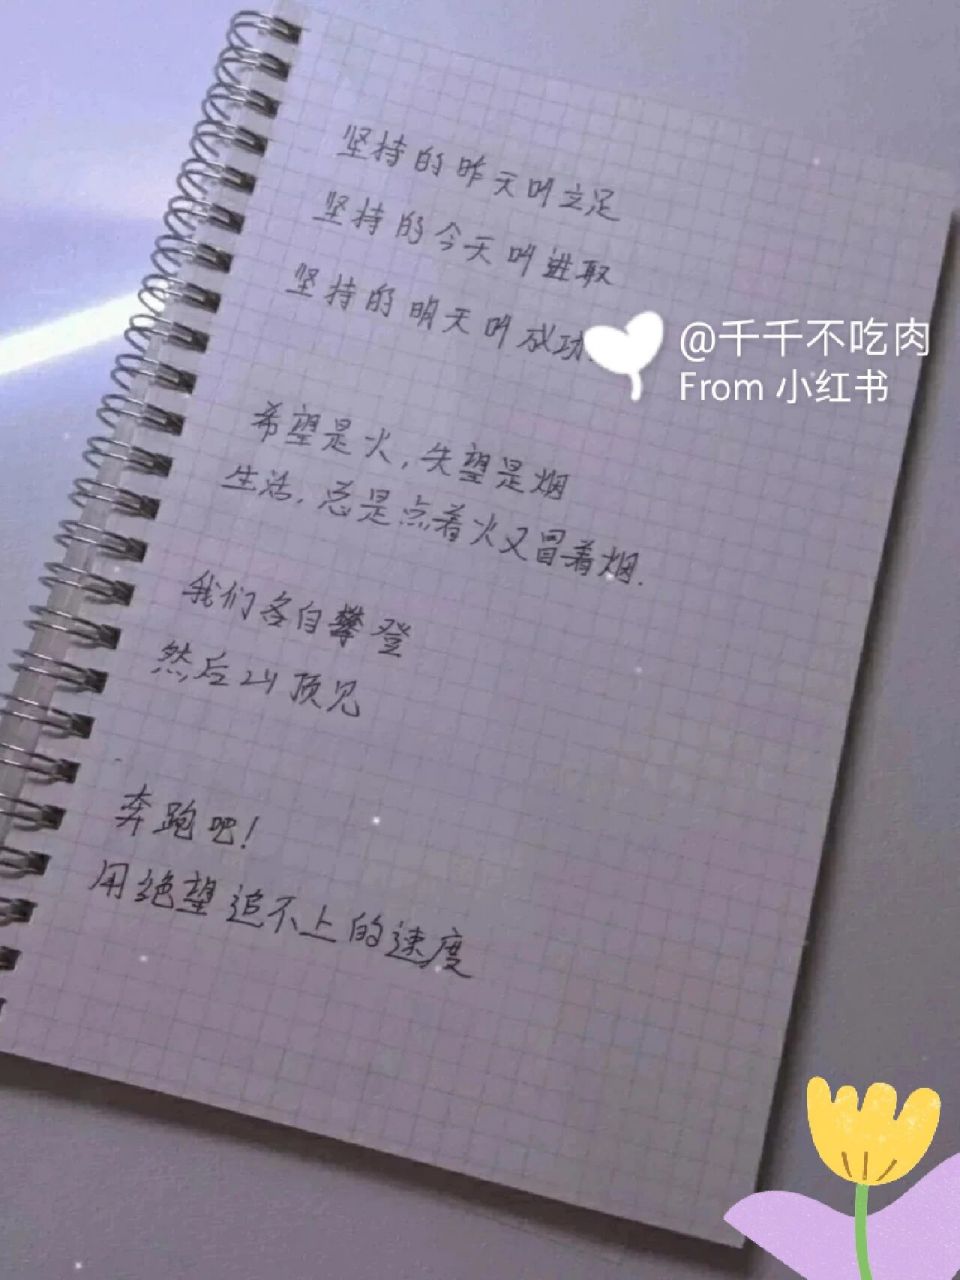 坚持的昨天叫立足
坚持的今天叫进取
坚持的明天叫成功.
@千千不吃肉
From 小红书
希望是火,失望是烟
生活,总是点着火又冒着烟.
我们各自攀登
然后山顶见
奔跑吧!
用绝望追不上的速度